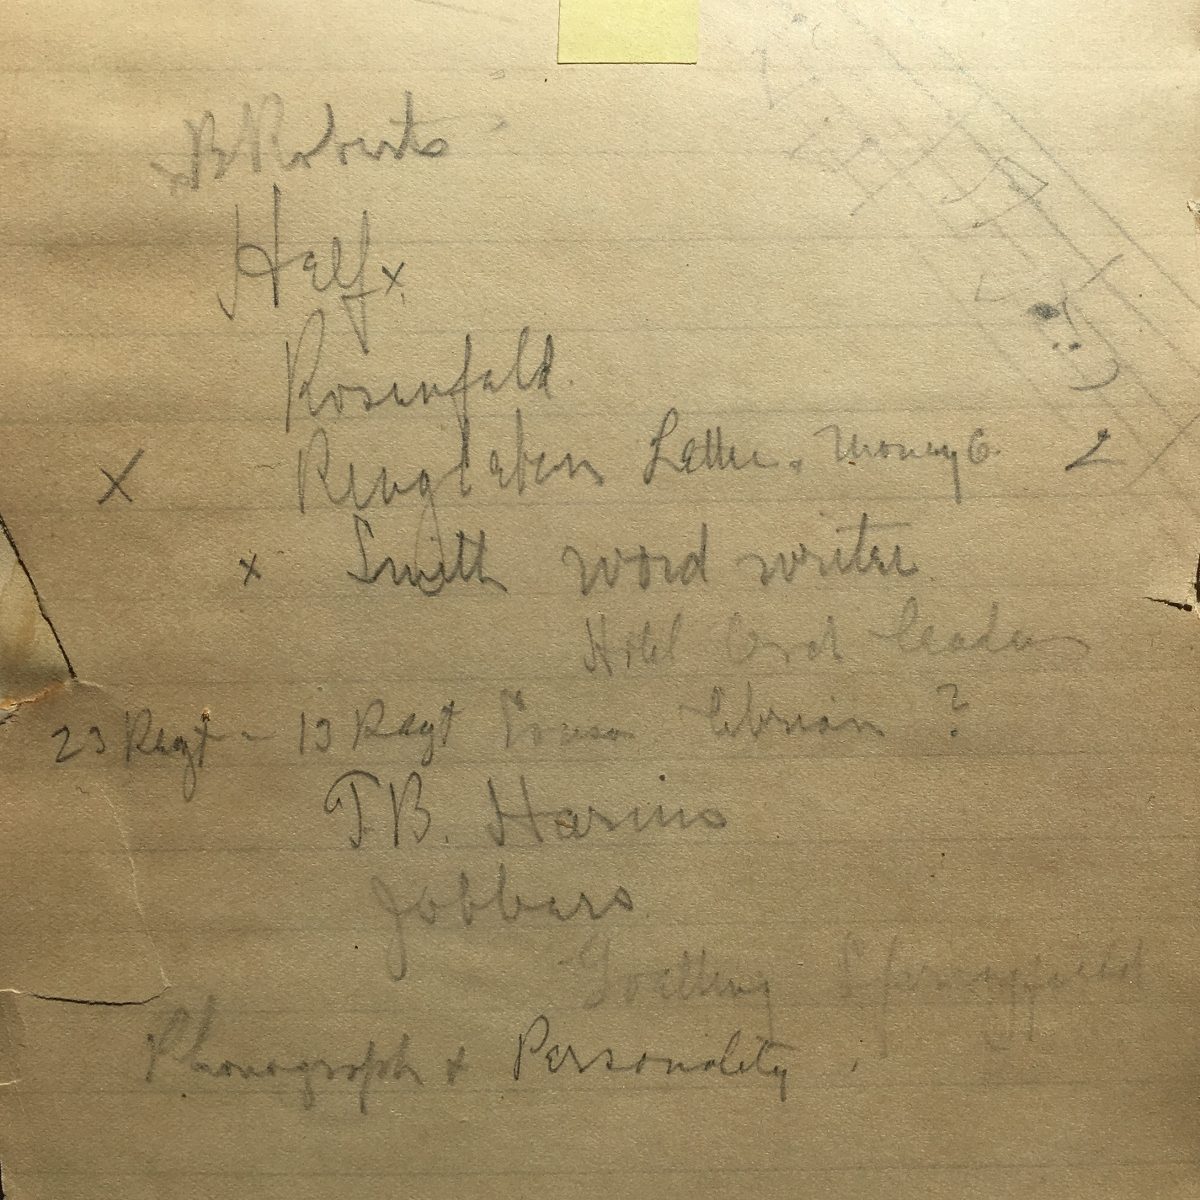 x B Roberts
Helf x
Rosenfeld.
X Ringleben Letter. Money 6. 2
x Smith word writer
Hotel Orch leader
23 Regt - 13 Regt Sousa librian ?
T.B. Harms
Jobbers
Goetting Springfield
Phonograph + Personality